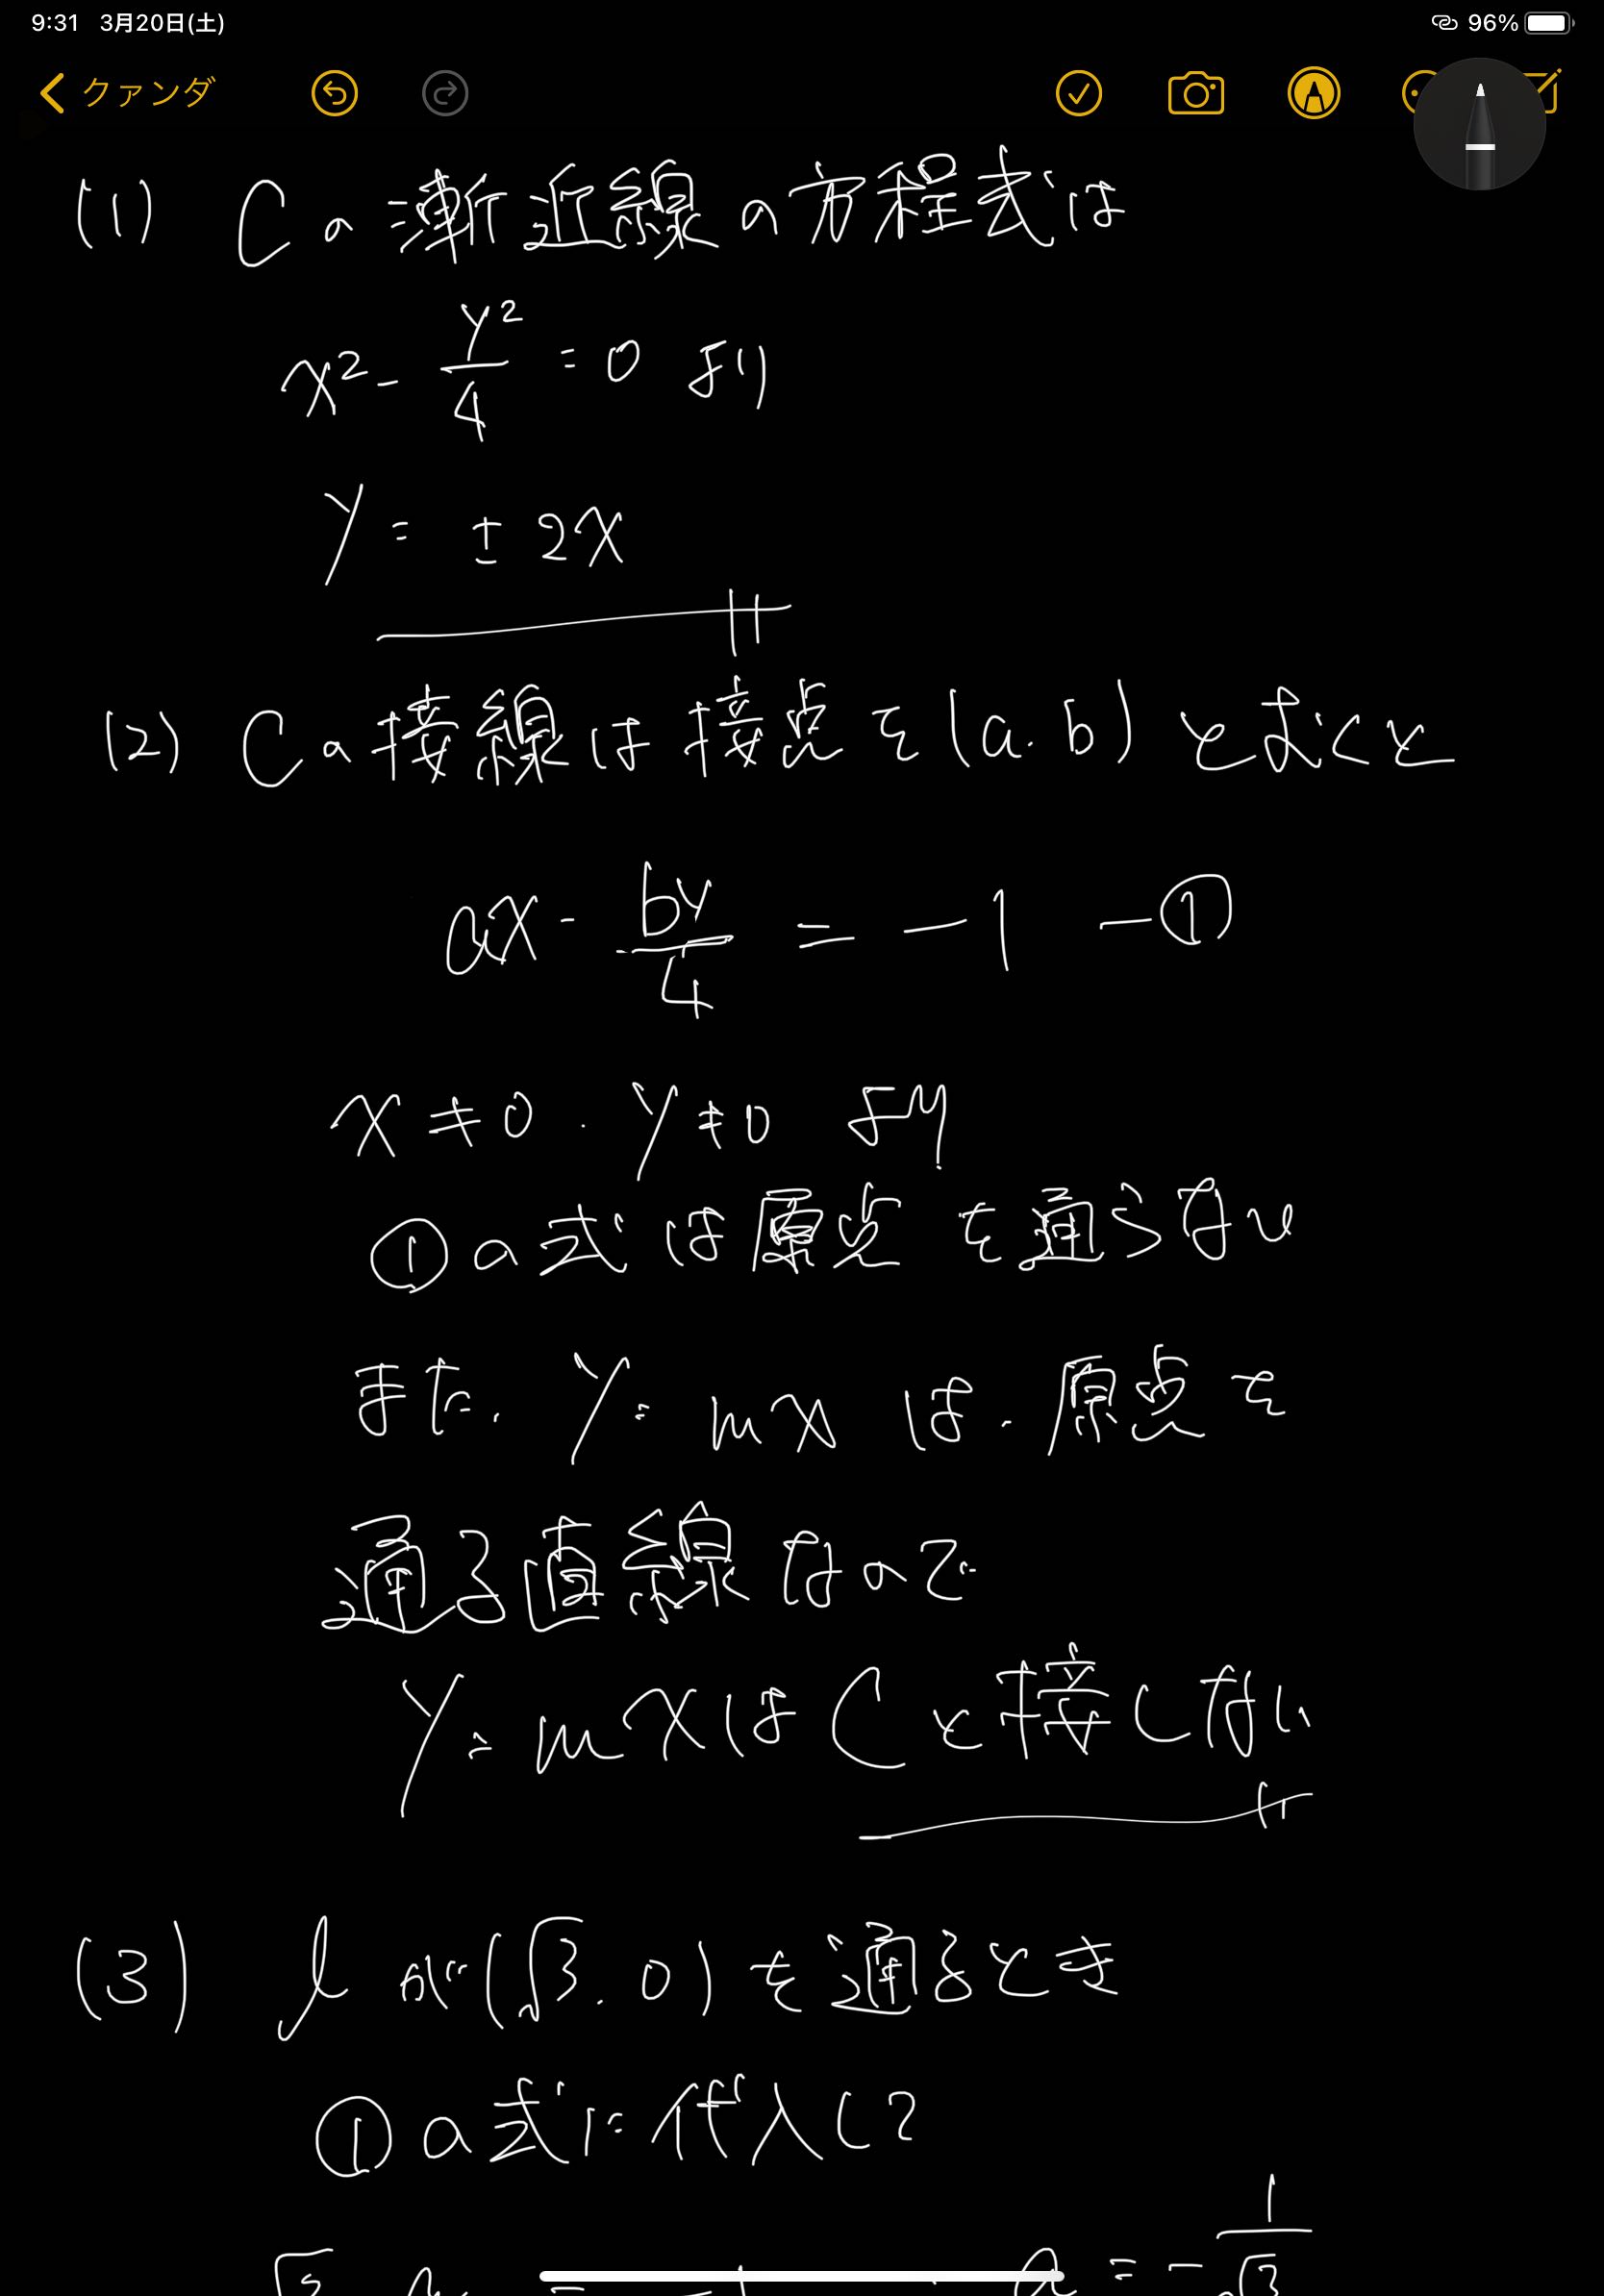 9:31 3月20日(土) 96%
クァンダ
(1) Cの漸近線の方程式は
x² - y²/4 = 0 より
y = ± 2x
(2) Cの接線は接点を(a.b)とおくと
ax - by/4 = -1 -①
x≠0 . y≠0 より
①の式は原点を通らない
また、y=mx は、原点を
通る直線なので
y=mxはCと接しない
(3) lが(√3.0)を通るとき
①の式に代入して
√3 a = -1 a = -1/√3